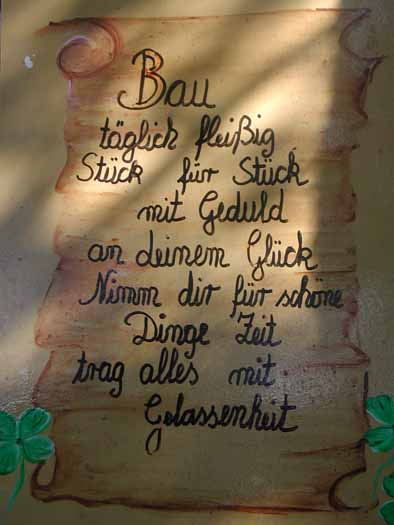 Bau
täglich fleißig
Stück für Stück
mit Geduld
an deinem Glück
Nimm dir für schöne
Dinge Zeit
trag alles mit
Gelassenheit